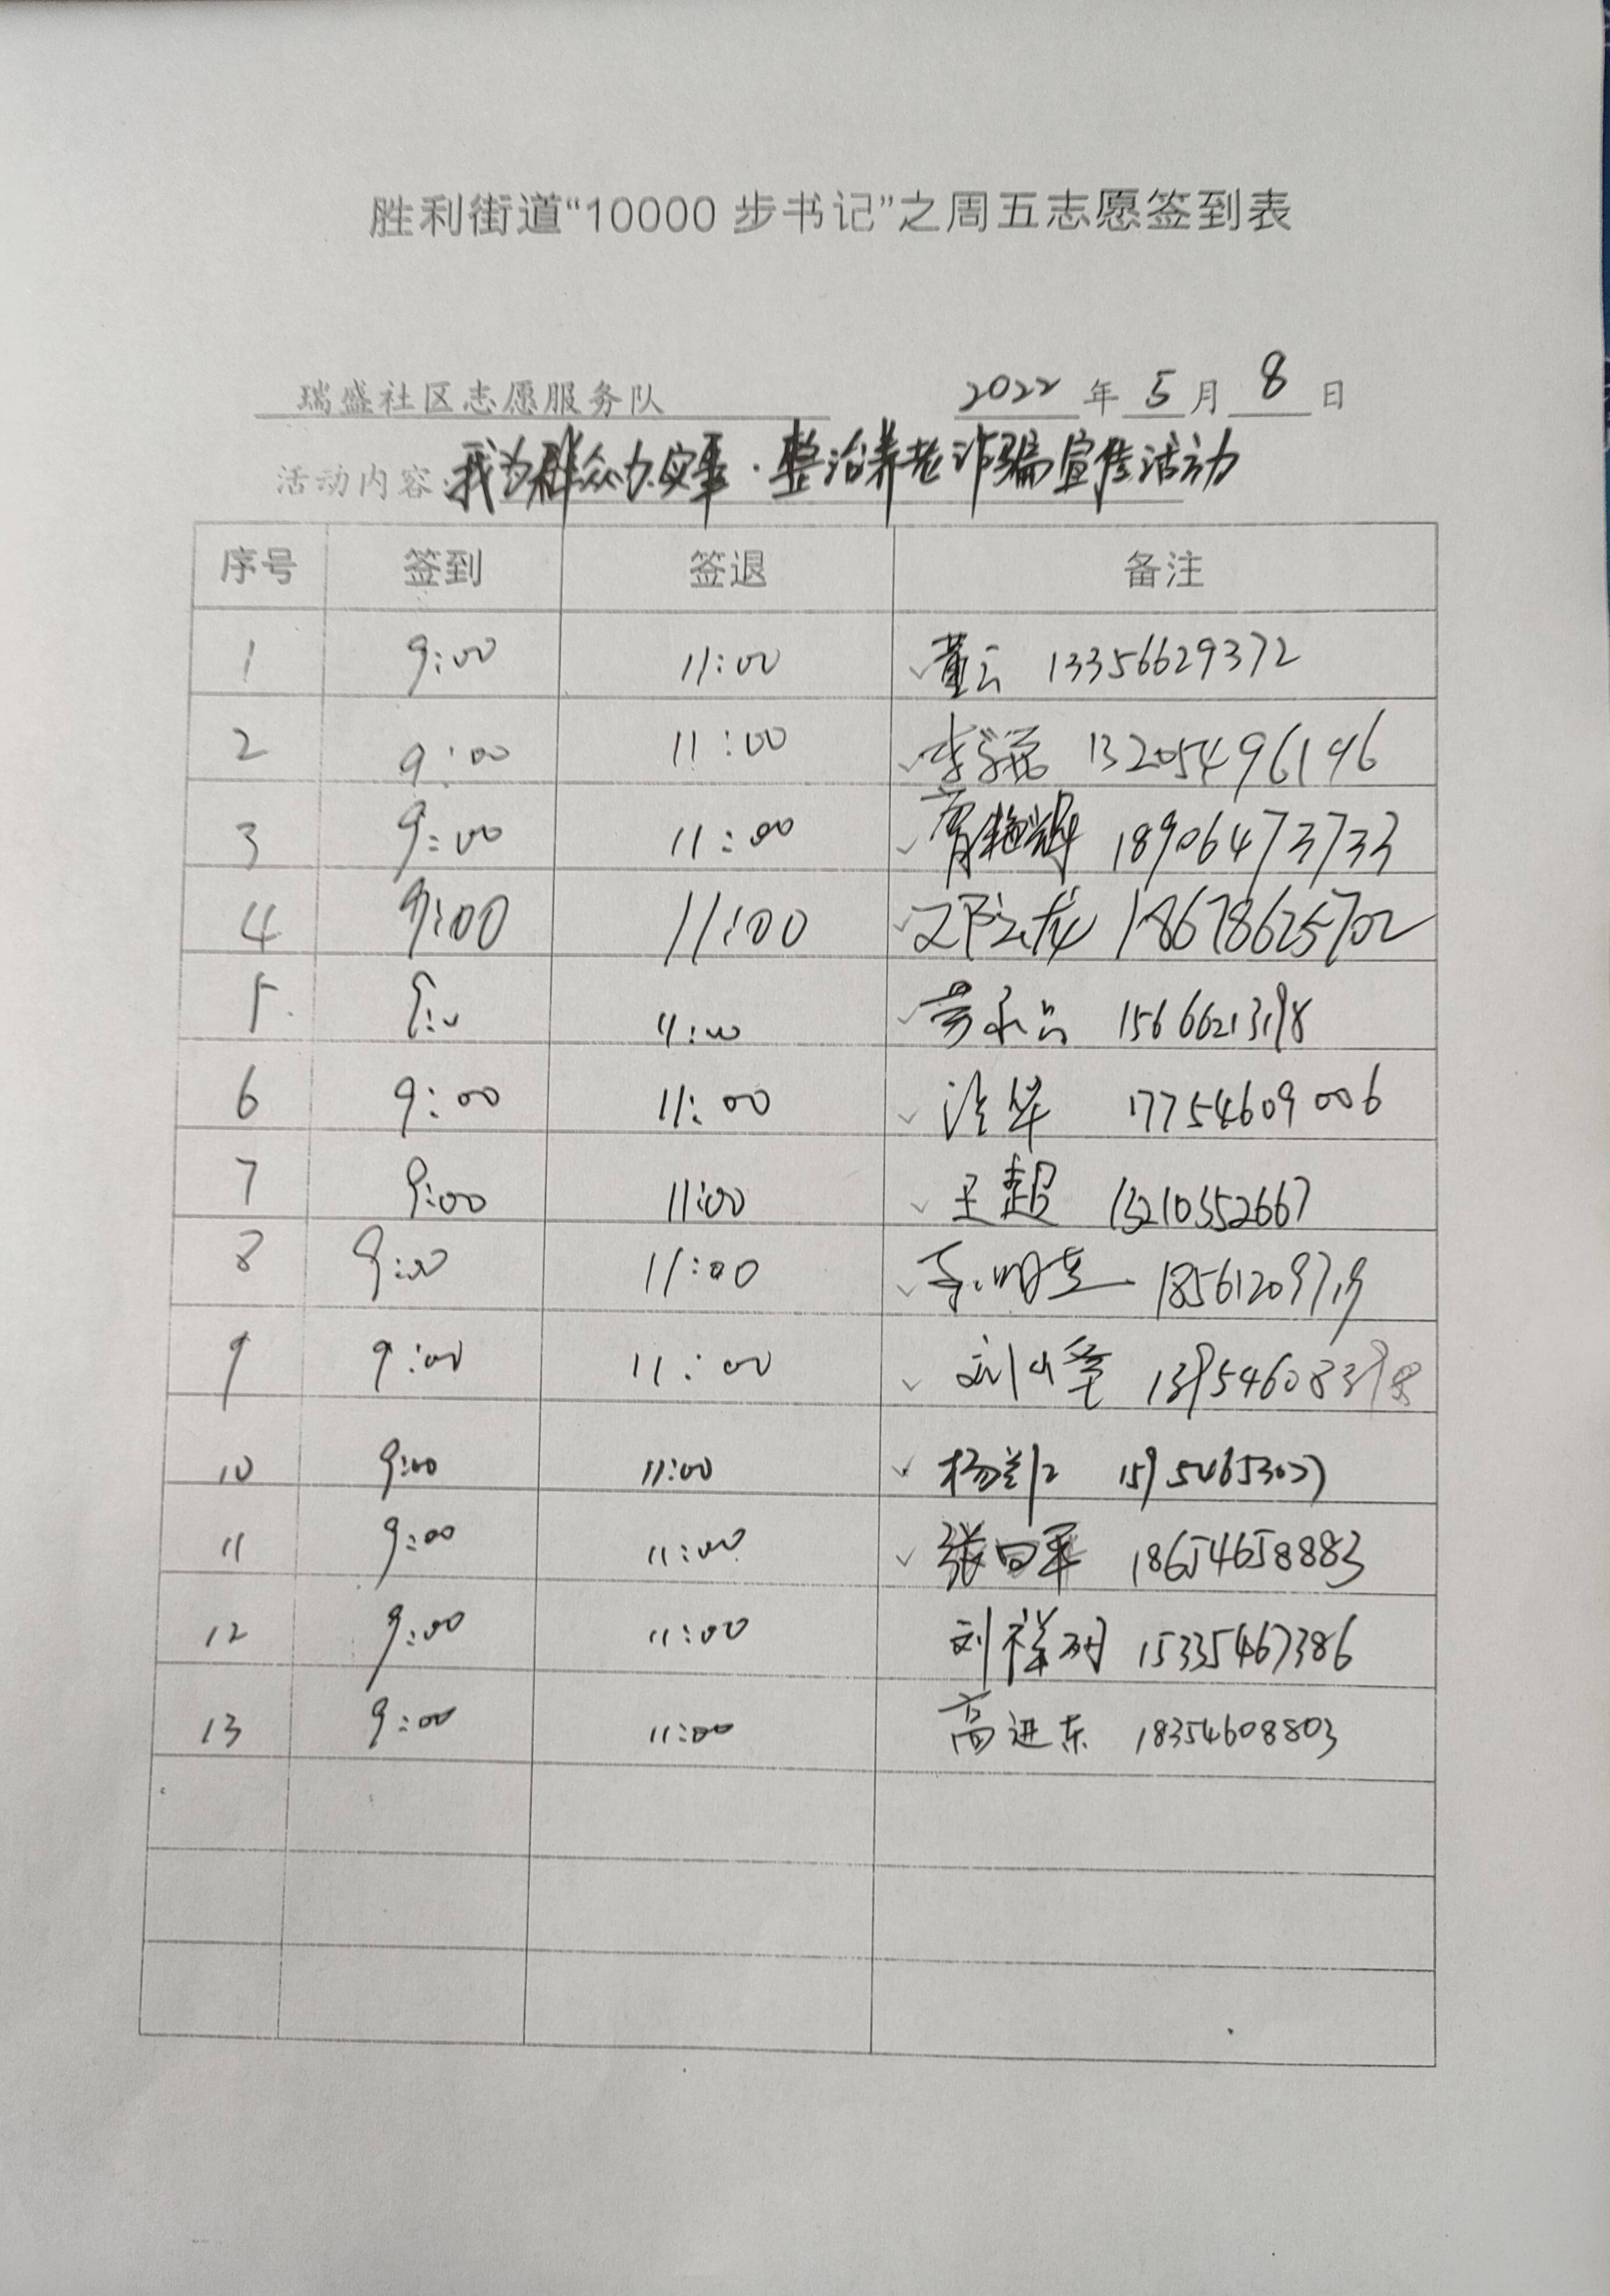 胜利街道“10000步书记”之周五志愿签到表
瑞盛社区志愿服务队 2022年5月8日
活动内容:我为群众办实事·整治养老诈骗宣传活动
序号 签到 签退 备注
1 9:00 11:00 ✓董云 13356629372
2 9:00 11:00 ✓李 13205496196
3 9:00 11:00 ✓ 18906473733
4 9:00 11:00 ✓ 18678625702
5 9:00 11:00 ✓
6 9:00 11:00 ✓ 17754609006
7 9:00 11:00 ✓王超 13210352667
8 9:00 11:00 ✓
9 9:00 11:00 ✓刘 13954608398
10 9:00 11:00 ✓杨
11 9:00 11:00 ✓张 18654658883
12 9:00 11:00 刘祥 15335467386
13 9:00 11:00 高进东 18354608803